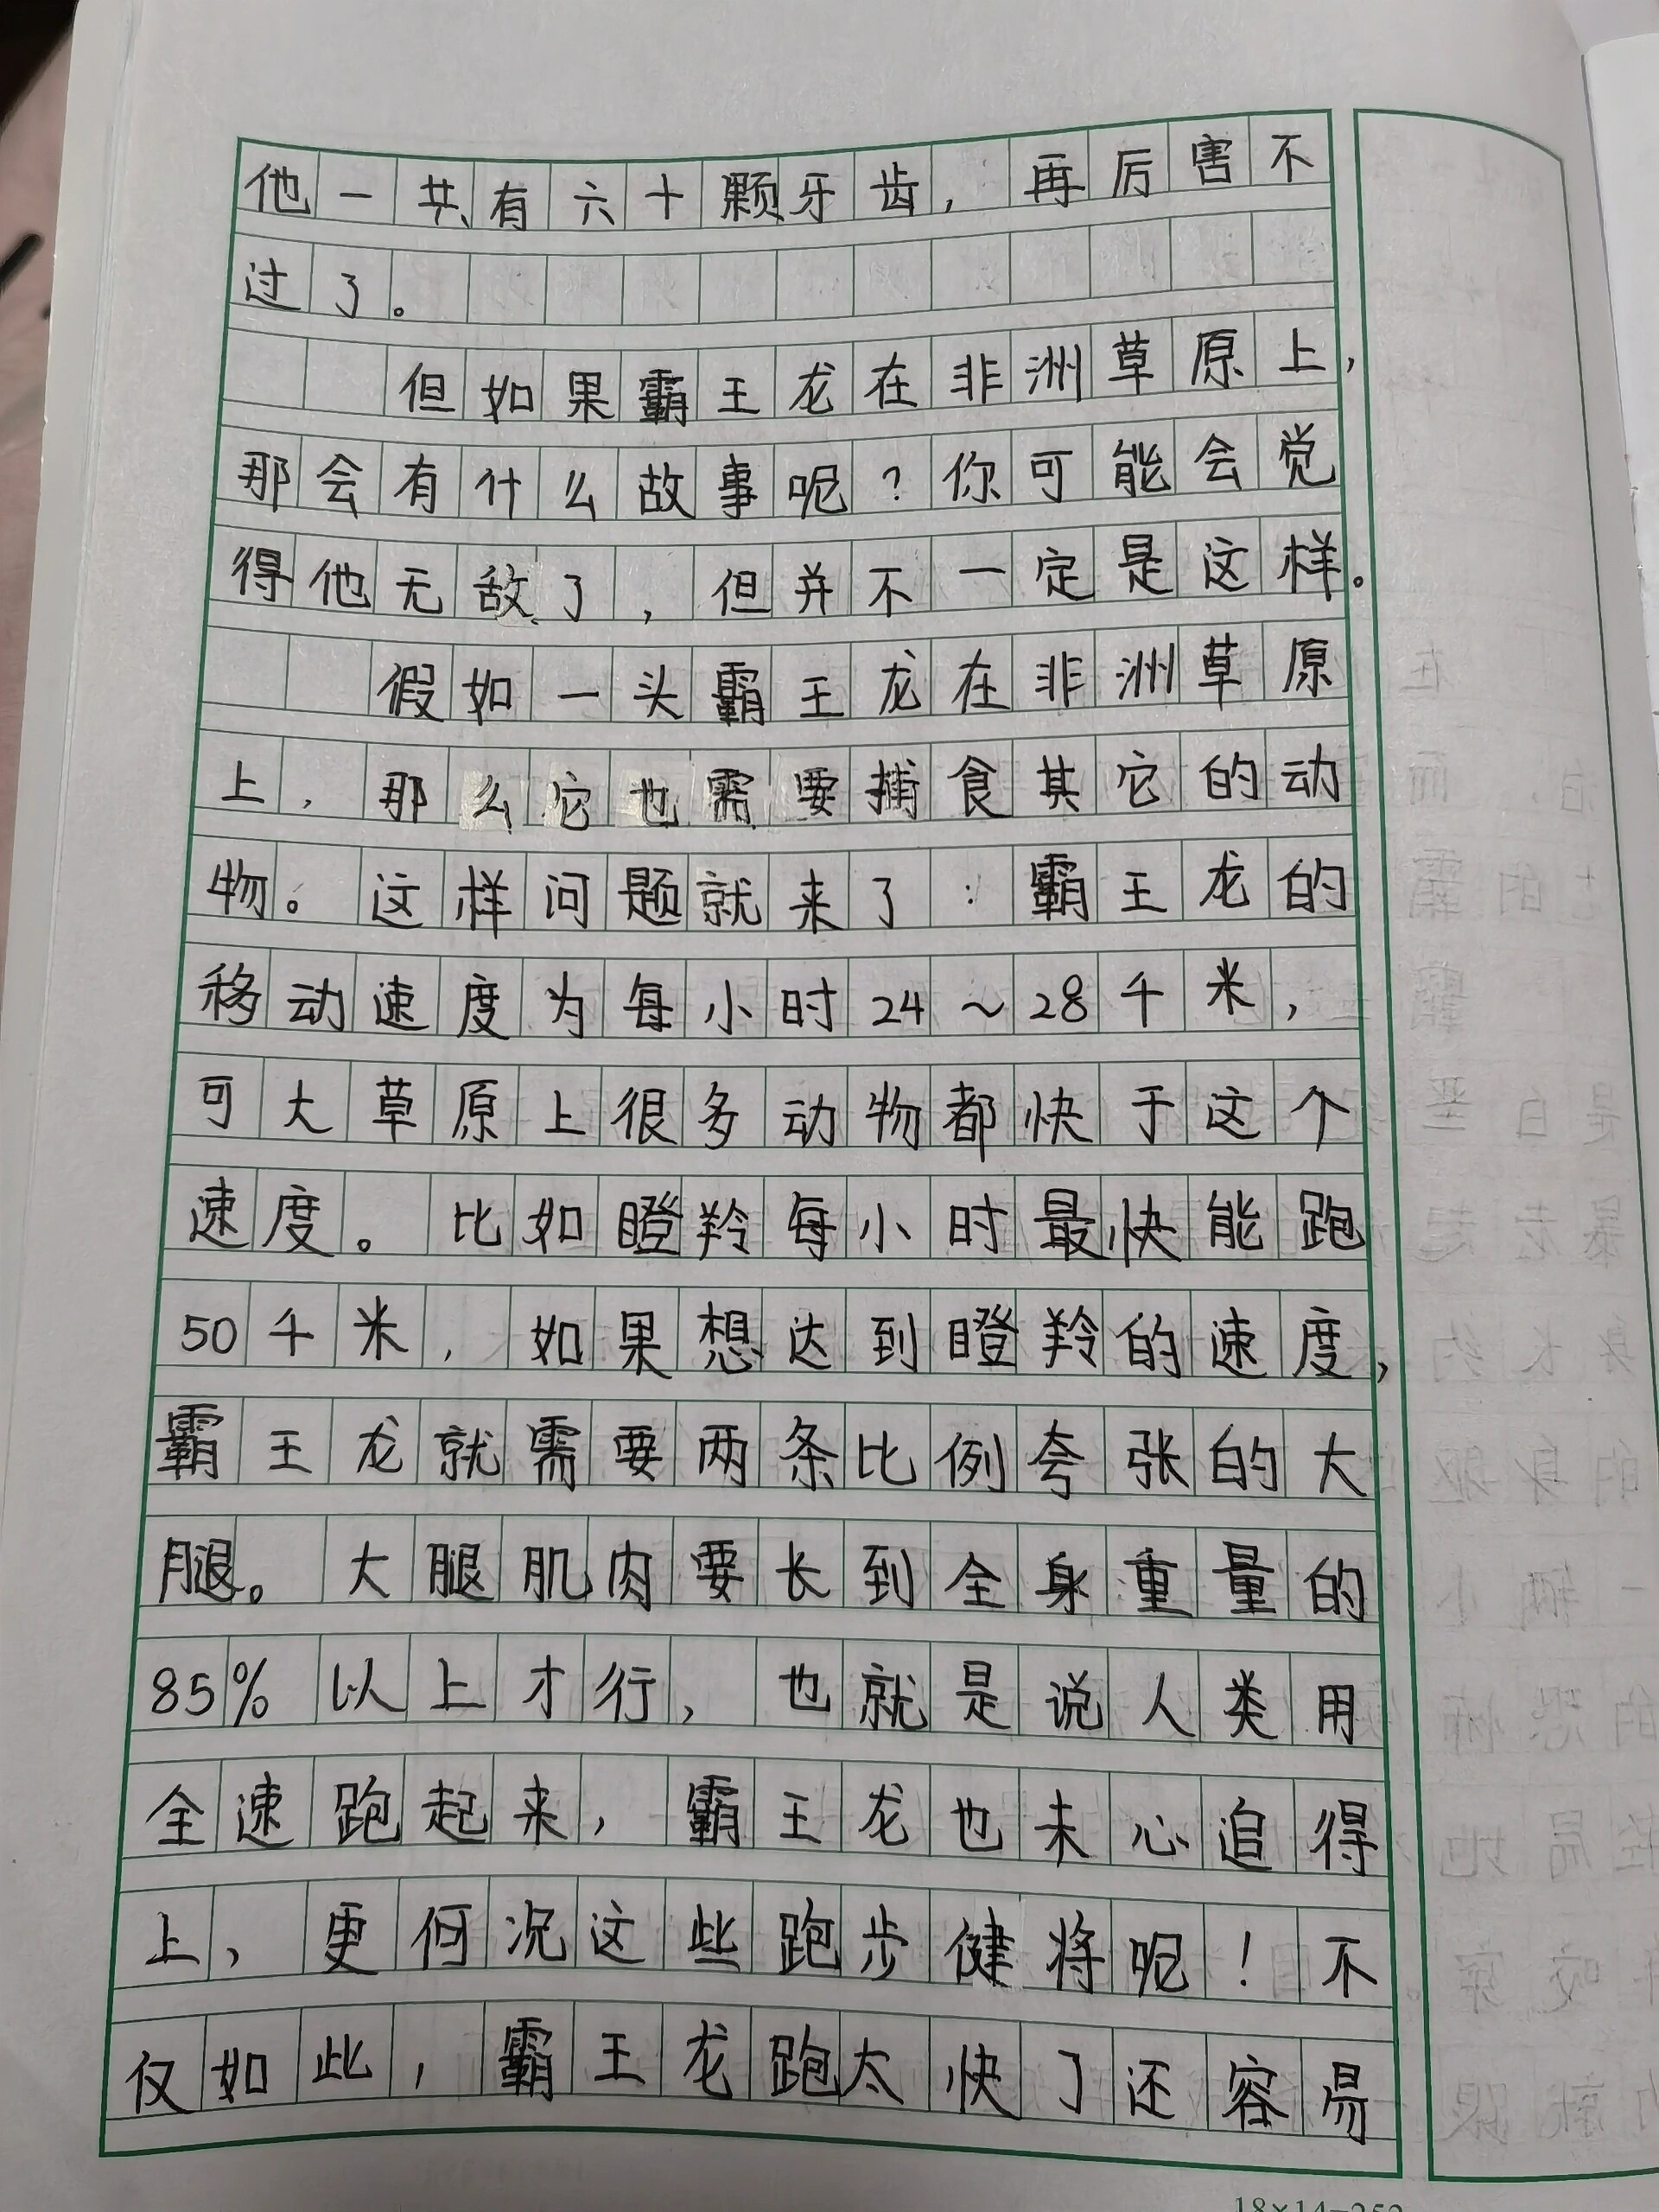 他一共有六十颗牙齿，再厉害不
过了。
但如果霸王龙在非洲草原上，
那会有什么故事呢？你可能会觉
得他无敌了，但并不一定是这样。
假如一头霸王龙在非洲草原
上，那么它也需要捕食其它的动
物。这样问题就来了：霸王龙的
移动速度为每小时24～28千米，
可大草原上很多动物都快于这个
速度。比如瞪羚每小时最快能跑
50千米，如果想达到瞪羚的速度，
霸王龙就需要两条比例夸张的大
腿。大腿肌肉要长到全身重量的
85%以上才行，也就是说人类用
全速跑起来，霸王龙也未心追得
上，更何况这些跑步健将呢！不
仅如此，霸王龙跑太快了还容易